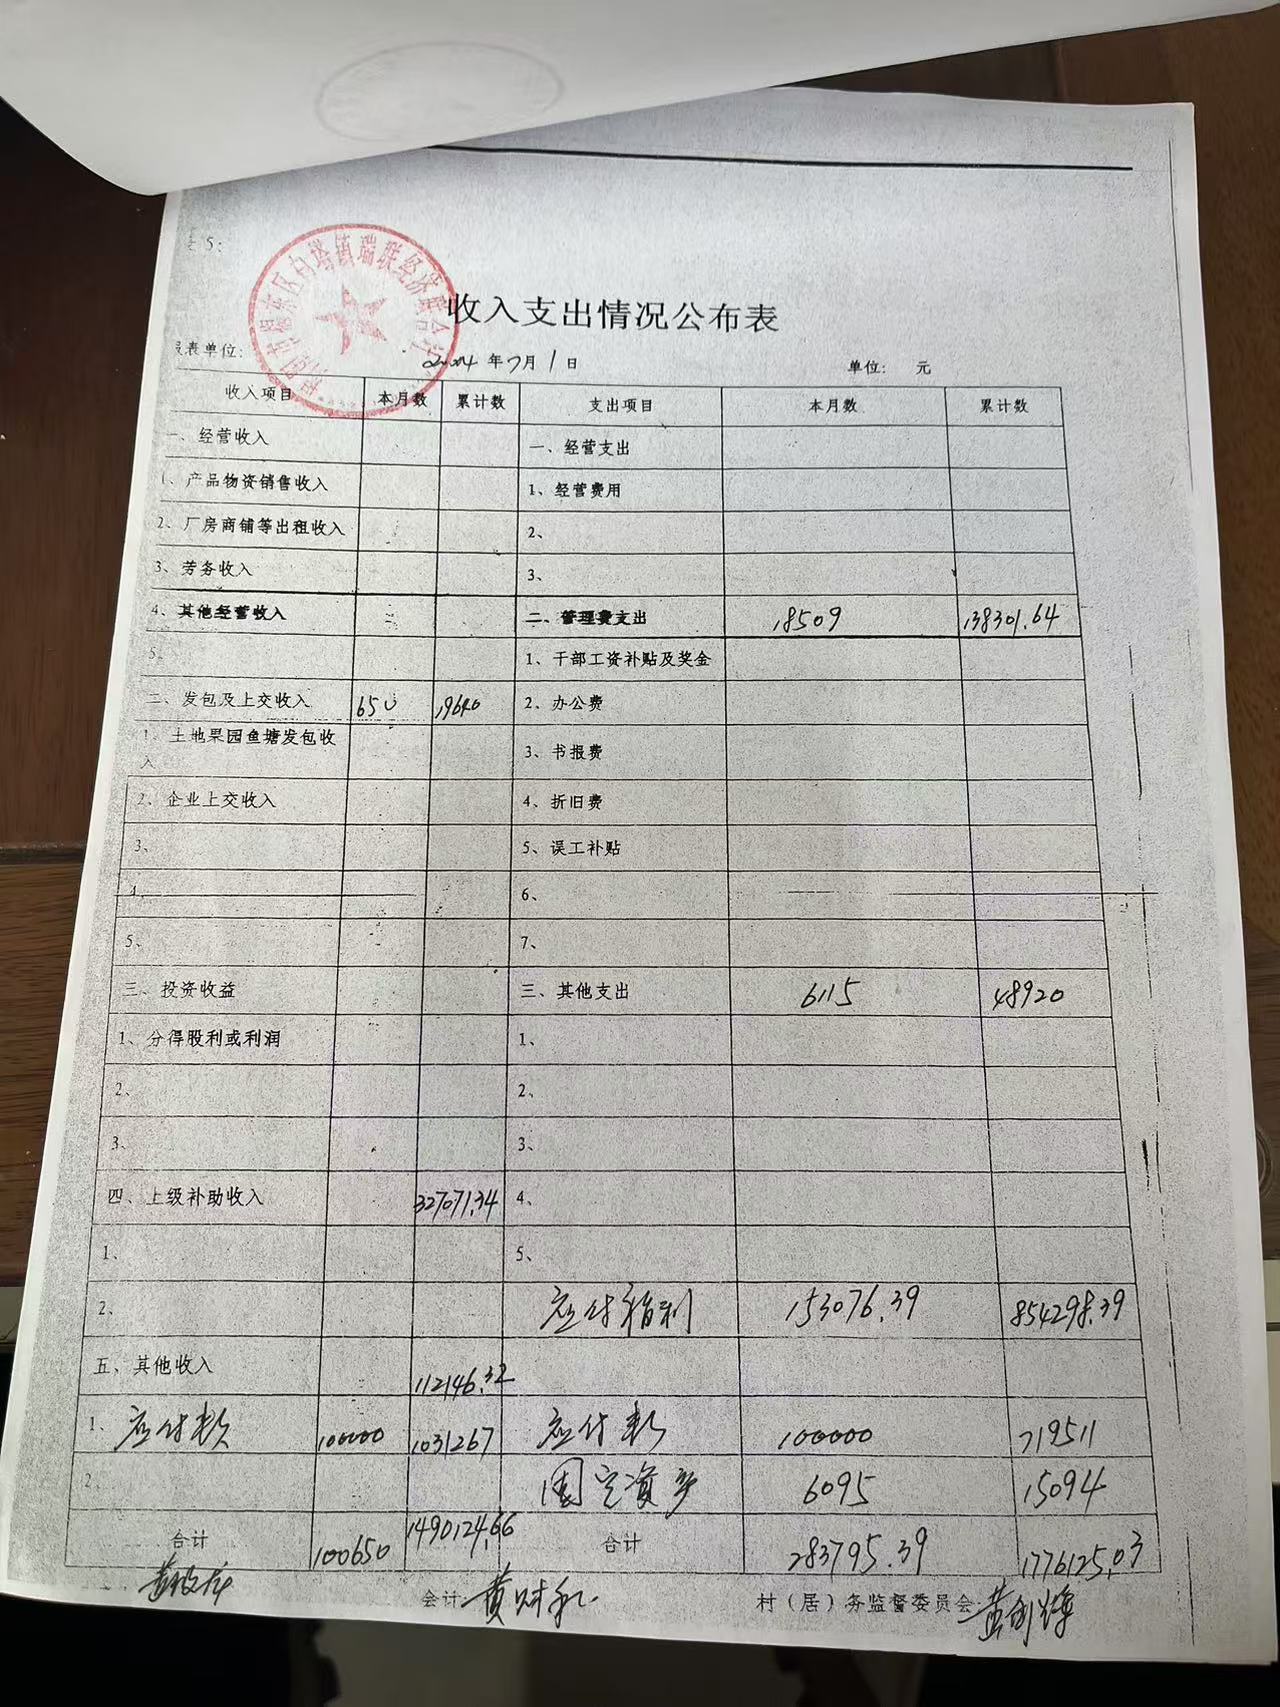 5:
区白塔镇瑞联经济联合
收入支出情况公布表
表单位:
2024 年 7 月 1 日
单位: 元
收入项目 本月数 累计数 支出项目 本月数 累计数
一、经营收入 一、经营支出
1、产品物资销售收入 1、经营费用
2、厂房商铺等出租收入 2、
3、劳务收入 3、
4、其他经营收入 二、管理费支出 18509 138301.64
5、 1、干部工资补贴及奖金
二、发包及上交收入 650 19640 2、办公费
1、土地果园鱼塘发包收入 3、书报费
2、企业上交收入 4、折旧费
3、 5、误工补贴
4、 6、
5、 7、
三、投资收益 三、其他支出 6115 48920
1、分得股利或利润 1、
2、 2、
3、 3、
四、上级补助收入 327071.34 4、
1、 5、
2、 应付福利 153076.39 854298.39
五、其他收入 112146.32
1、应付款 100000 1031267 应付款 100000 719511
2、 固定资产 6095 15094
合计 100650 1490124.66 合计 283795.39 1776125.03
会计: 黄财和 村（居）务监督委员会: 黄创锋